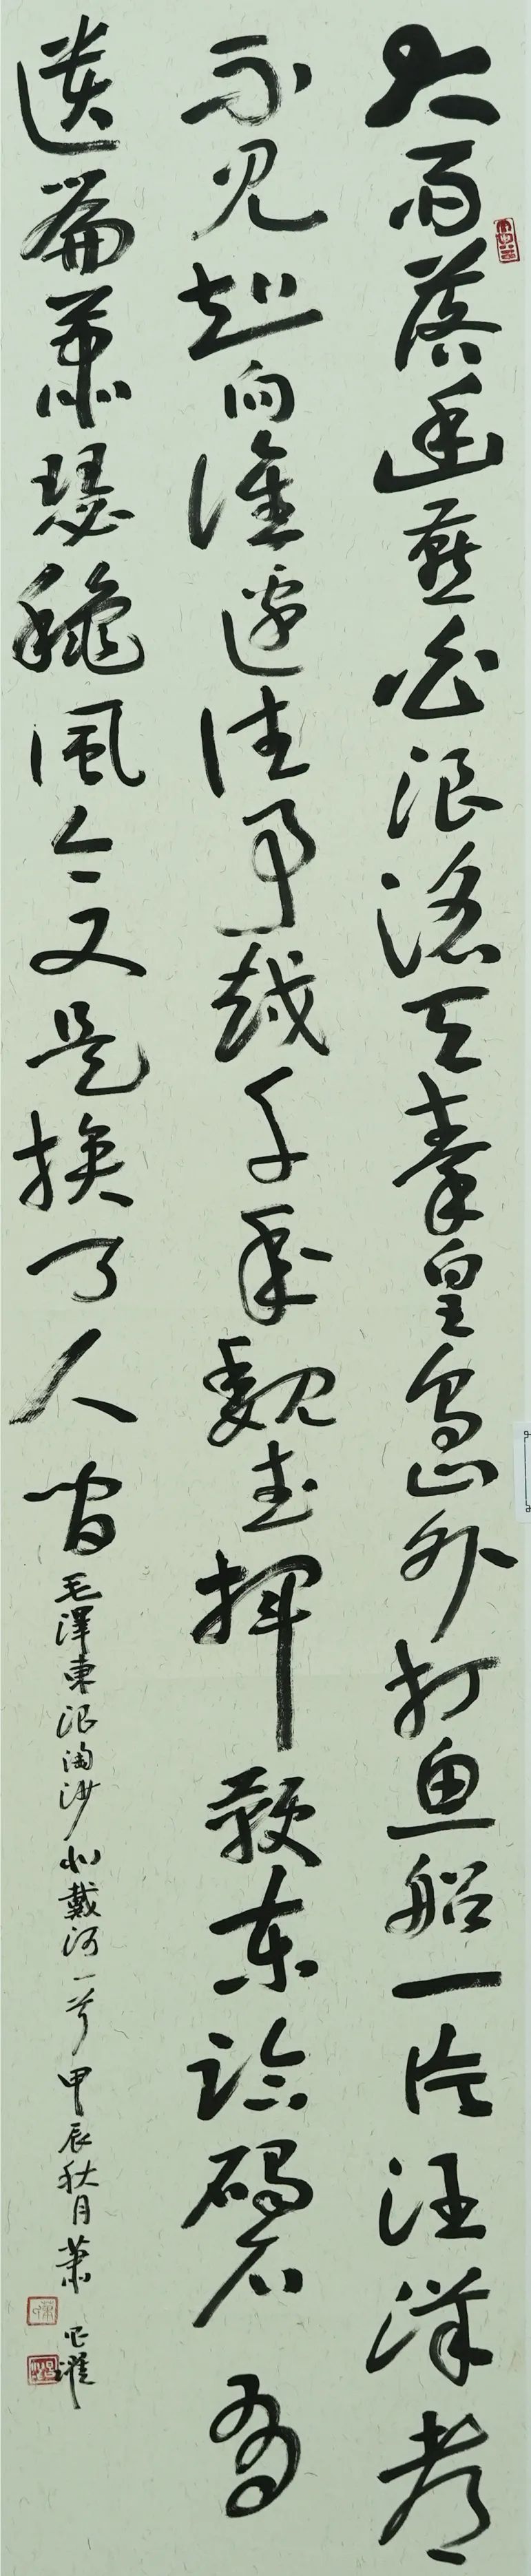 大雨落幽燕白浪滔天秦皇島外打鱼船一片汪洋都
不见知向谁邊往事越千年魏武挥鞭东临碣石有
遗篇萧瑟穐風今又是换了人间 毛澤東浪淘沙北戴河一首 甲辰秋月 萧